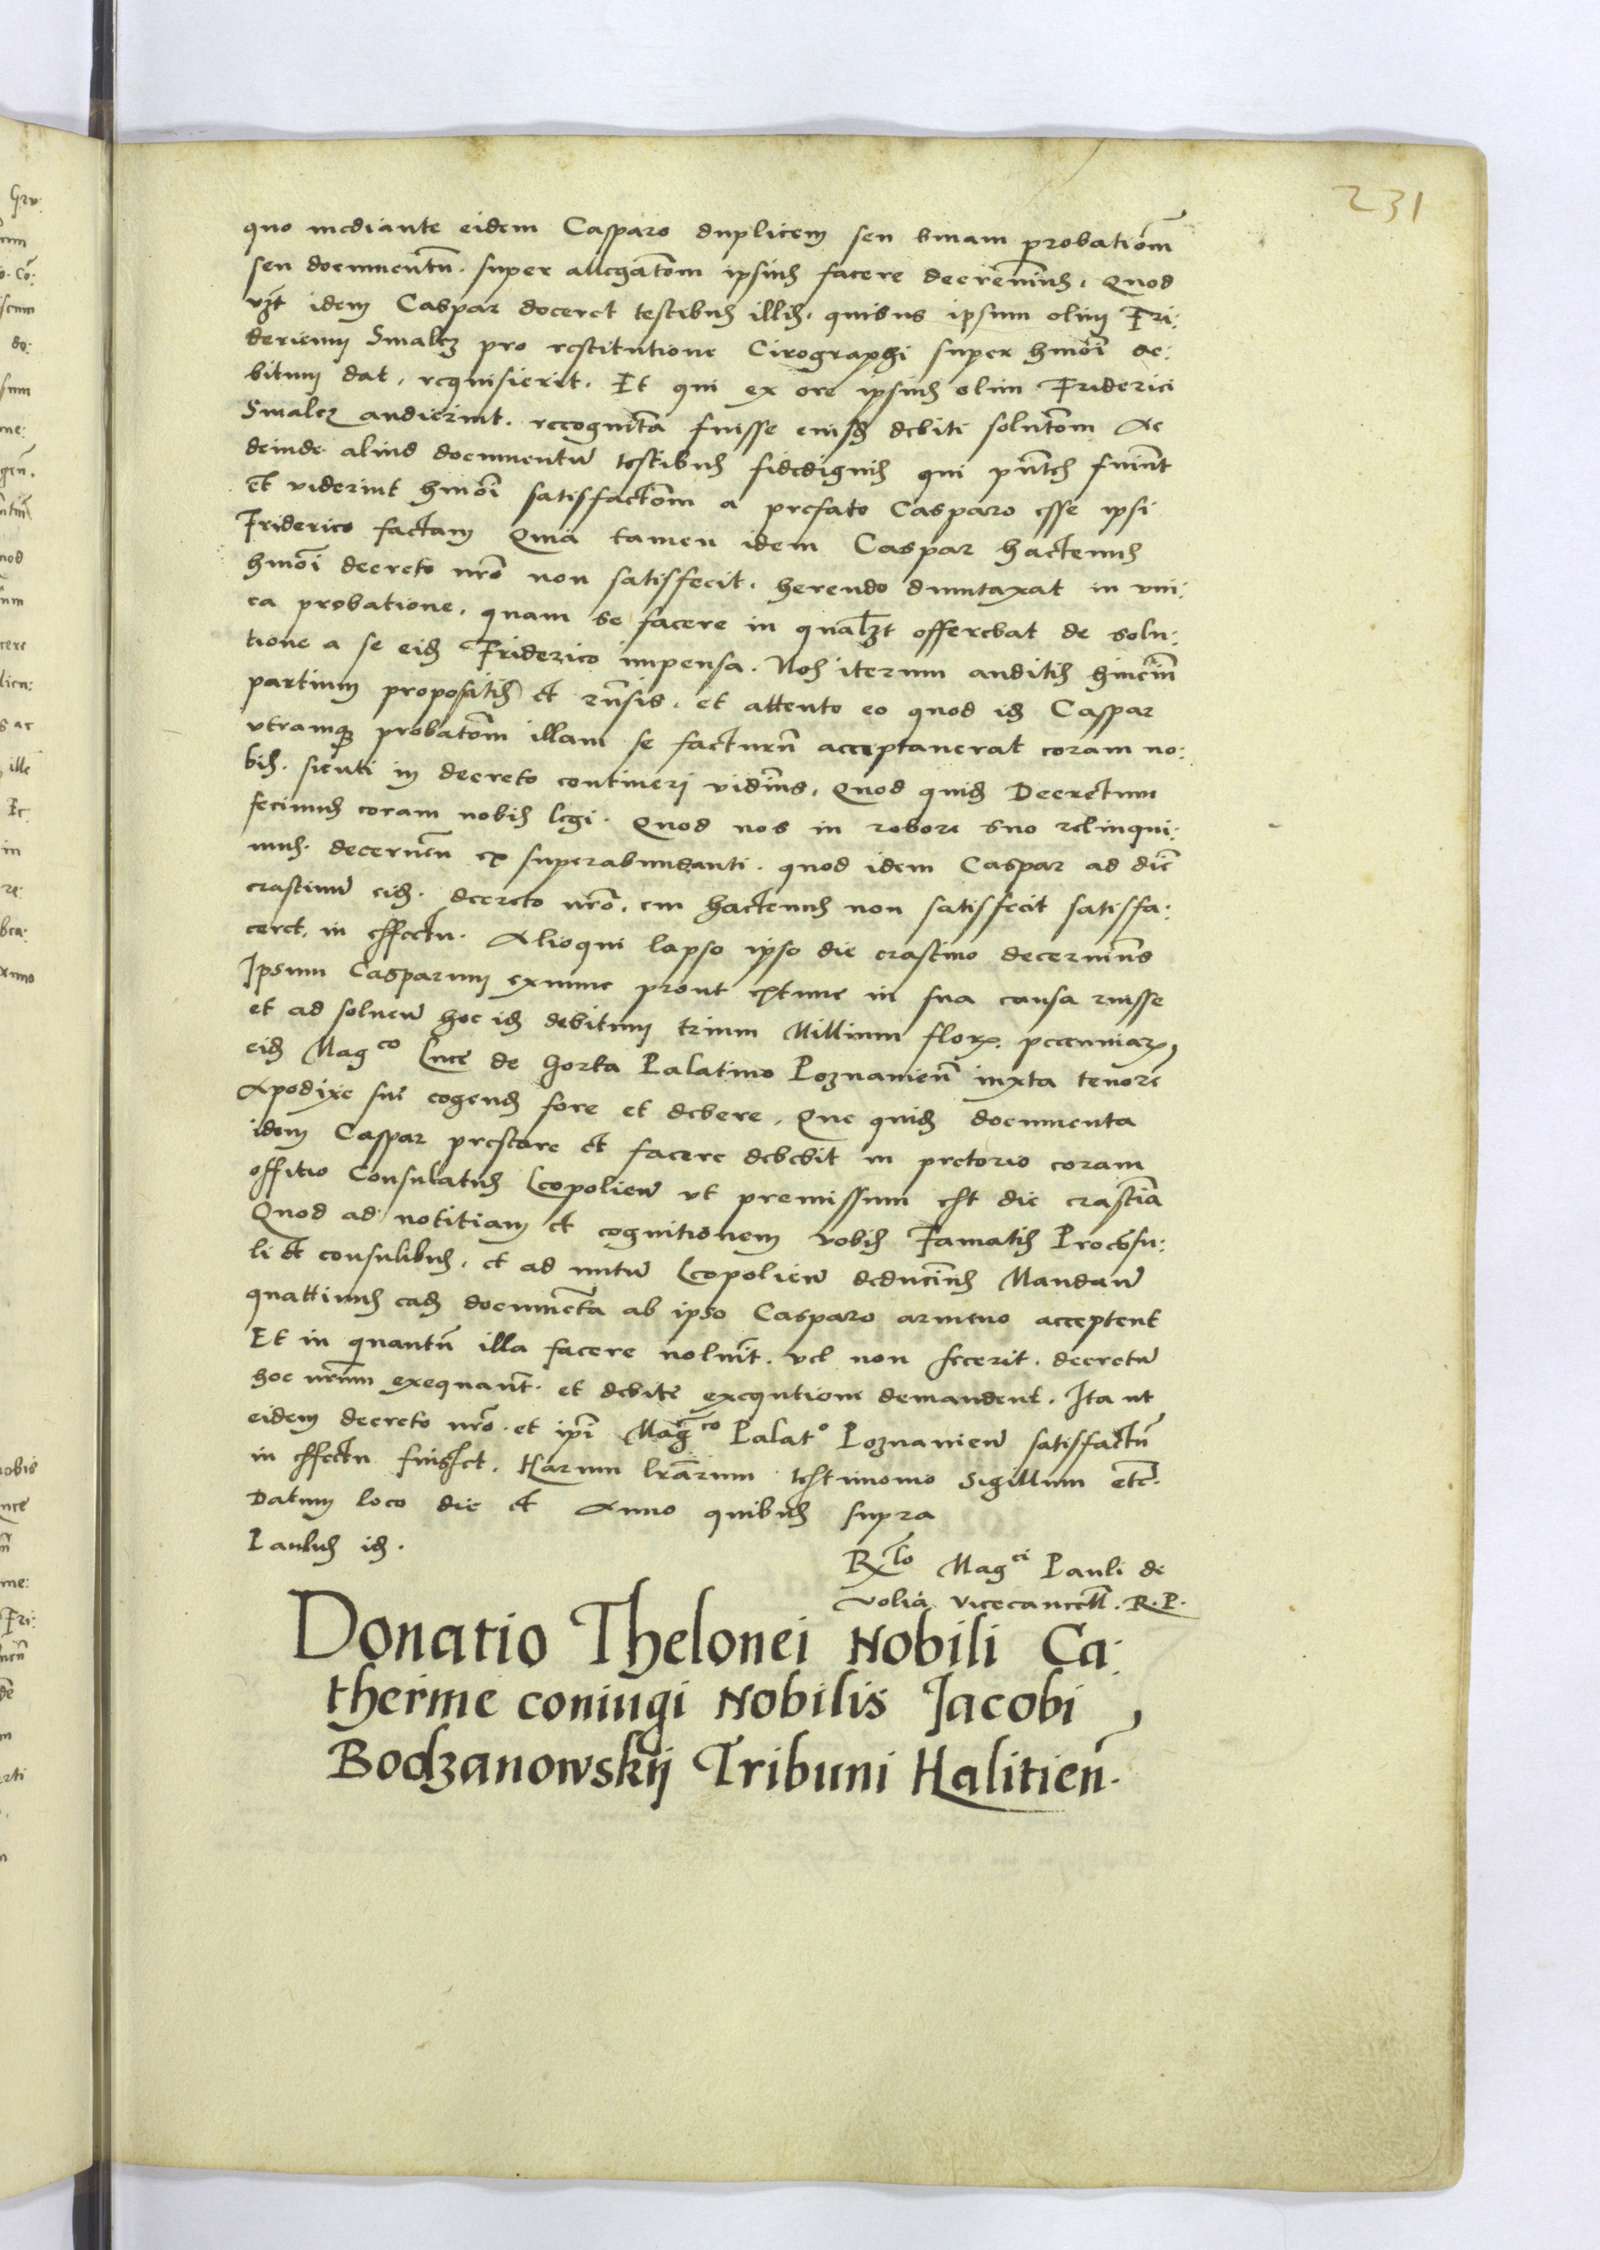 231
quo mediante eidem Casparo duplicem seu binam probationẽ
seu documentũ. super allegatõm ipsius facere decreuimus. Quod
vzt idem Caspar doceret testibus illis. quibus ipsum olim Fri:
dericum Smalcz pro restitutione Cirographi super hmõi de:
bitum dat, requisierit. Et qui ex ore ipsius olim Friderici
Smalcz audierint. recognitã fuisse eiusd debiti solutõm Ac
deinde aliud documentũ testibus fidedignis qui pñtes fuĩnt
et viderint hmõi satisfactõm a prefato Casparo esse ipsi
Friderico factam Quia tamen idem Caspar hactenus
hmõi decreto nrõ non satisfecit. herendo duntaxat in vni:
ca probatione. quam se facere in qualzt offerebat de solu:
tione a se eid Friderico impensa. Nos iterum auditis hincin̄
partium propositis et rñsis. et attento eo quod id Caspar
vtramq probatõm illam se facturũ acceptauerat coram no:
bis. sicuti in decreto contineri vidimus. Quod quid Decretum
fecimus coram nobis legi. Quod nos in robore suo relinqui:
mus. decernen̄ ex superabundanti. quod idem Caspar ad diẽ
crastinũ eid. decreto nrõ. cui hactenus non satisfecit satisfa:
ceret. in effectu. Alioqui lapso ipso die crastino decernimus
Ipsum Casparum exnunc prout extunc in sua causa ruisse
et ad soluen̄ hoc id debitum trium Millium florꝝ. pecuniarꝝ
eid Magco Luce de Gorka Palatino Poznanien̄ iuxta tenorẽ
Apodixe sue cogend fore et debere. Que quid documenta
idem Caspar prestare et facere debebit in pretorio coram
offitio Consulatus Leopolien̄ vt premissum est die crastiã
Quod ad notitiam et cognitionem vobis Famatis Procõsu:
li et consulibus. et ad nutũ Leopolien̄ deducimus Mandan̄
quattinus ead documẽta ab ipso Casparo armeno acceptent
Et in quantũ illa facere noluĩt. vel non fecerit. decretũ
hoc nrũm exequant. et debite executione demandent. Ita ut
eidem decreto nrõ. et ipi Magco Palato Poznanien̄ satisfactũ
in effectu fuisset. Harum lrãrum testimonio Sigillum etc.
Datum loco die et Anno quibus supra
Paulus id.
Rlo Magci Pauli de
volia vicecancell. R. P.
Donatio Thelonei Nobili Ca:
therine coniugi Nobilis Jacobi
Bodzanowskij Tribuni Halitien̄.